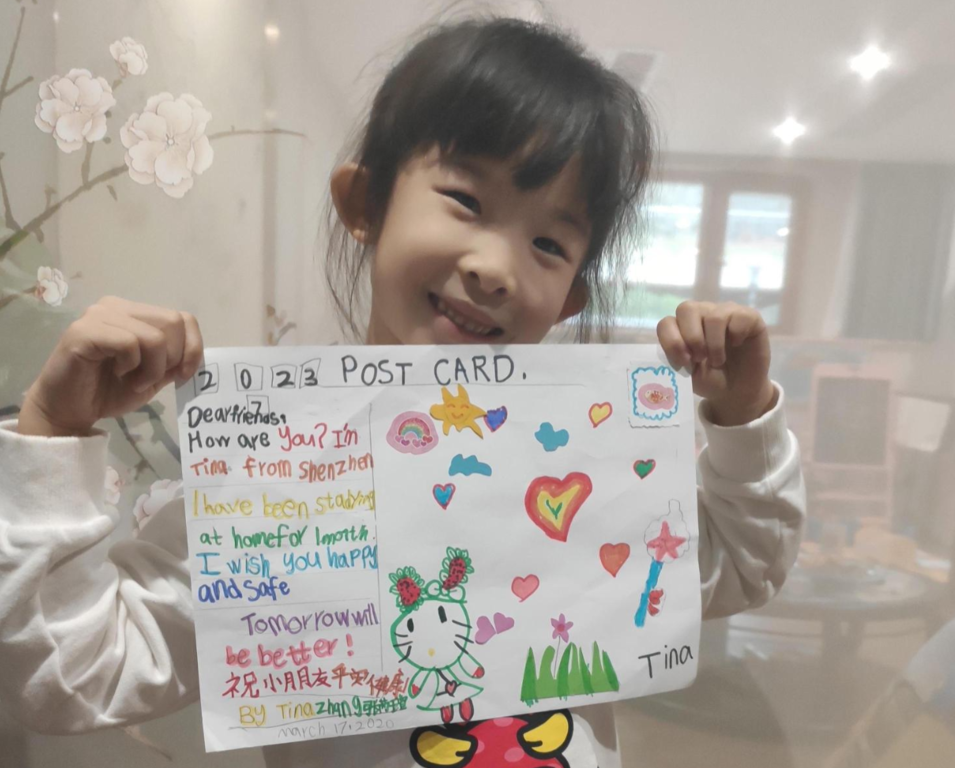 2 0 2 3 POST CARD.
7
Dear friends,
How are You? I'm
Tina from Shenzhen
I have been studying
at home For 1 month.
I wish you happy
and safe
Tomorrow will
be better!
祝小朋友平安健康!
BY Tina zhang
march 17, 2020
Y
Tina